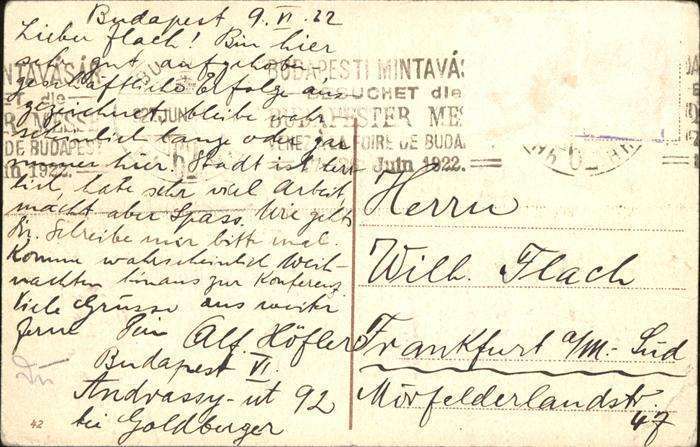 Budapest 9. VI. 22
Lieber Flach! Bin hier
sehr gut aufgehoben,
geschäftliche Erfolge aus-
gezeichnet, bleibe wahr-
scheinlich lange oder gar
immer hier. Stadt ist herr-
lich, habe sehr viel Arbeit,
macht aber Spass. Wie geht's
Schreibe mir bitte mal.
Komme wahrscheinlich Weih-
nachten hinaus zur Konferenz.
Viele Grüsse aus weiter
Ferne Alf. Höfler
Budapest VI.
Andrassy-ut 92
bei Goldberger
42
NTAVÁSÁR
DE BUDAPEST
in 1922.
BUDAPESTI MINTAVÁS
BESUCHET die
BUDAPESTER MES
VENEZ À LA FOIRE DE BUDA
Juin 1922.
Herrn
Wilh. Flach
Frankfurt a/M.- Süd
Mörfelderlandstr.
47